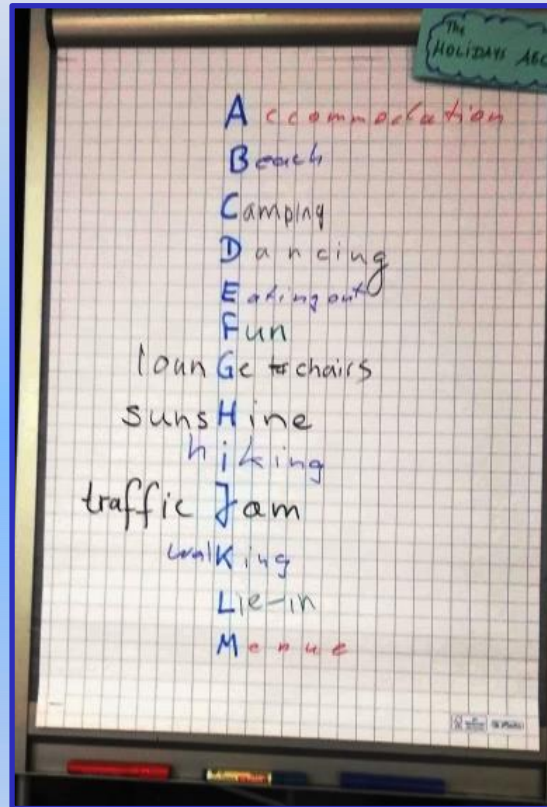 The
HOLIDAYS ABC
Accommodation
Beach
Camping
Dancing
Eating out
Fun
lounGe chairs
sunsHine
hiking
traffic Jam
walKing
Lie-in
Menue